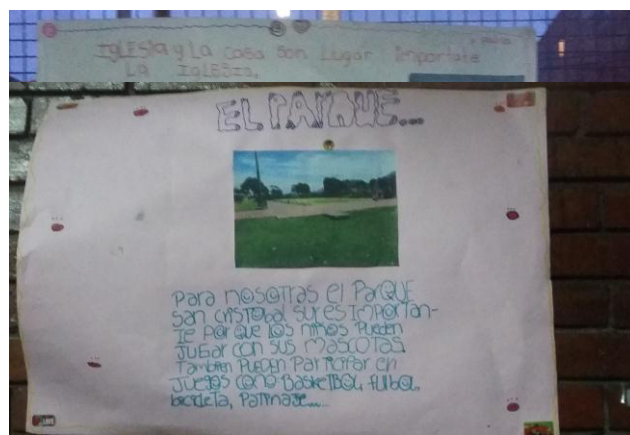 IGLESIA y La casa son Lugar importate
LA IGLESIA.
EL PARQUE...
Para nosotras el ParQUE
san cristobal sur es Importan-
te Por que Los niños Pueden
JUGar con sus mascotas.
Tambien PUEDEN ParTiciPar en
Juegos como BaskeTBOL, FUTBOL,
bicicleta, PaTinaje.....